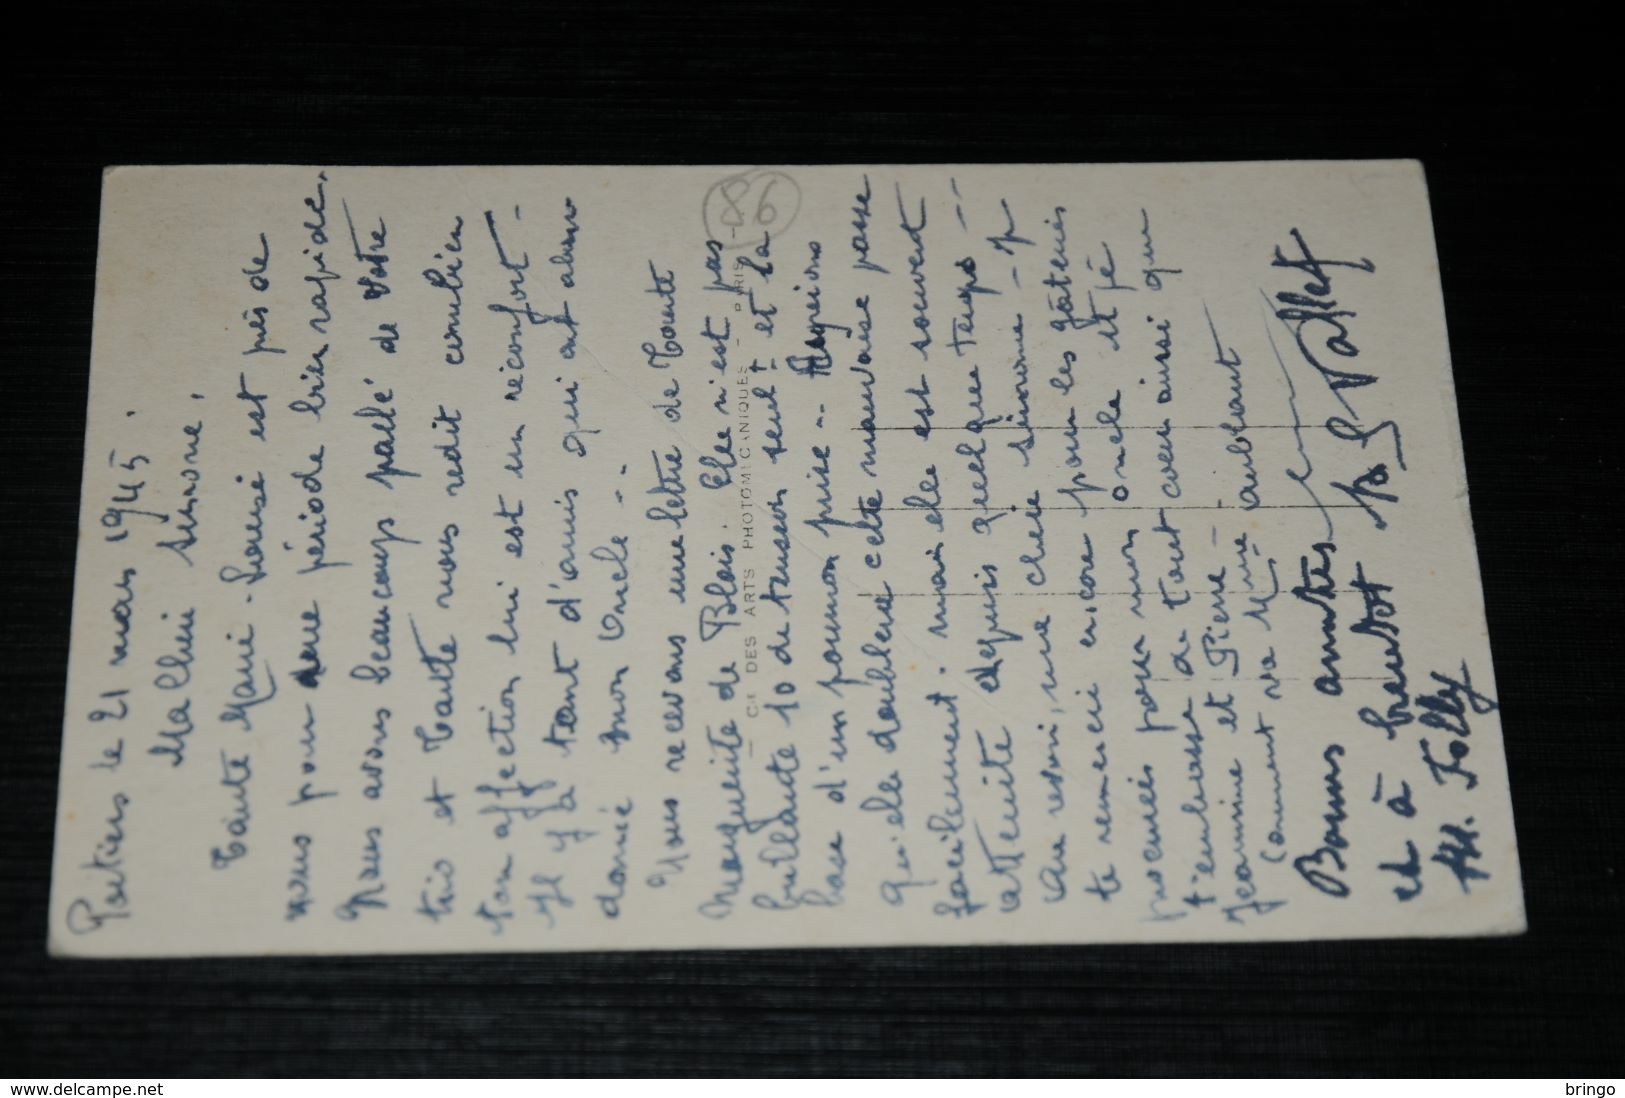 Poitiers le 21 mars 1945.
Ma chère Simone,
Tante Marie-Louise est près de
nous pour une période bien rapide.
Nous avons beaucoup parlé de votre
trio et Tante nous redit combien
ton affection lui est un réconfort -
Il y a tant d'amis qui ont aban
donné mon Oncle - -
Nous recevons une lettre de Tante
Marguerite de Blois. Elle n'est pas
brillante 10 de tension seult et la
base d'un poumon prise - - Espérons
qu'elle doublera cette mauvaise passe
facilement. mais elle est souvent
atteinte depuis quelque temps - -
Au revoir, ma chère Simone - Je
te remercie encore pour les gâteries
procurées pour mon oncle et je
t'embrasse de tout cœur ainsi que
Jeannine et Pierre -
Comment va Mme
Bonnes amitiés
et à bientôt
S Vallet
M. Jolly
CIE DES ARTS PHOTOMECANIQUES - PARIS -
86
delcampe.net
bringo